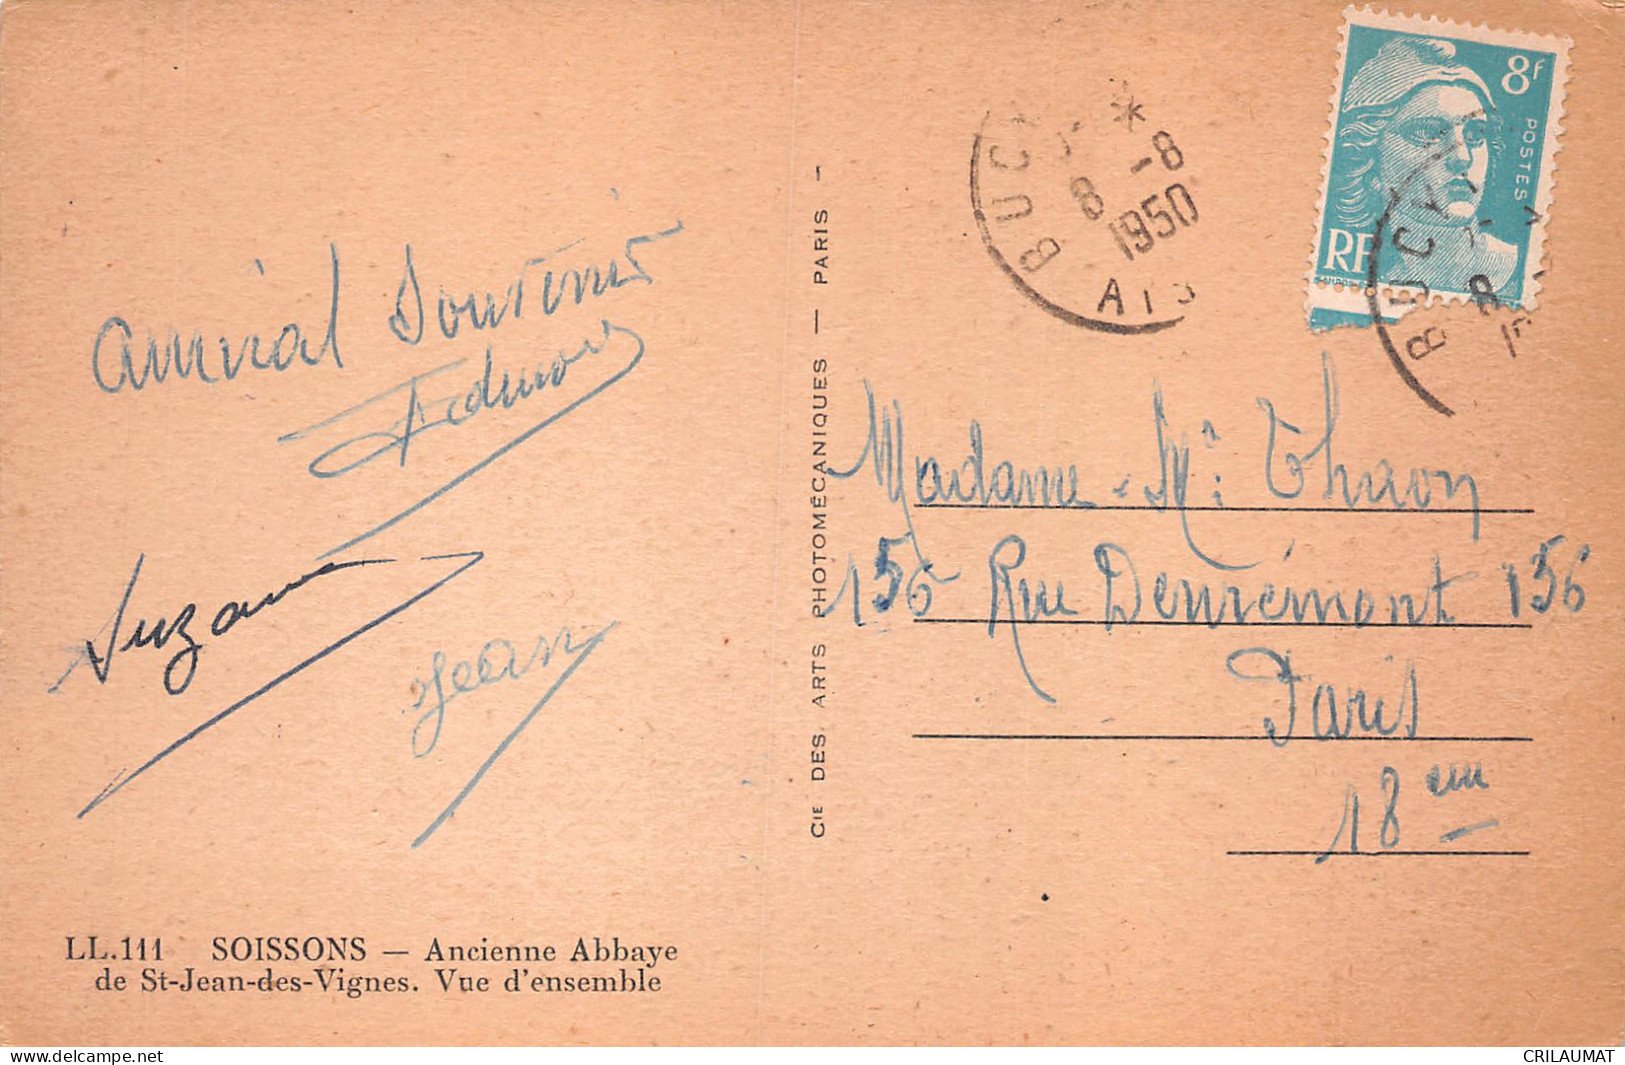 amical Souvenir
Edmond
Suzanne
Jean
LL.111 SOISSONS — Ancienne Abbaye
de St-Jean-des-Vignes. Vue d'ensemble
CIE DES ARTS PHOTOMÉCANIQUES — PARIS -
BUCY
*
8 -8
1950
AIS
8F
POSTES
RF
BUCY
8
Madame . Mr : Thaon
156 Rue Denrémont 156
Paris
18em
delcampe.net
CRILAUMAT